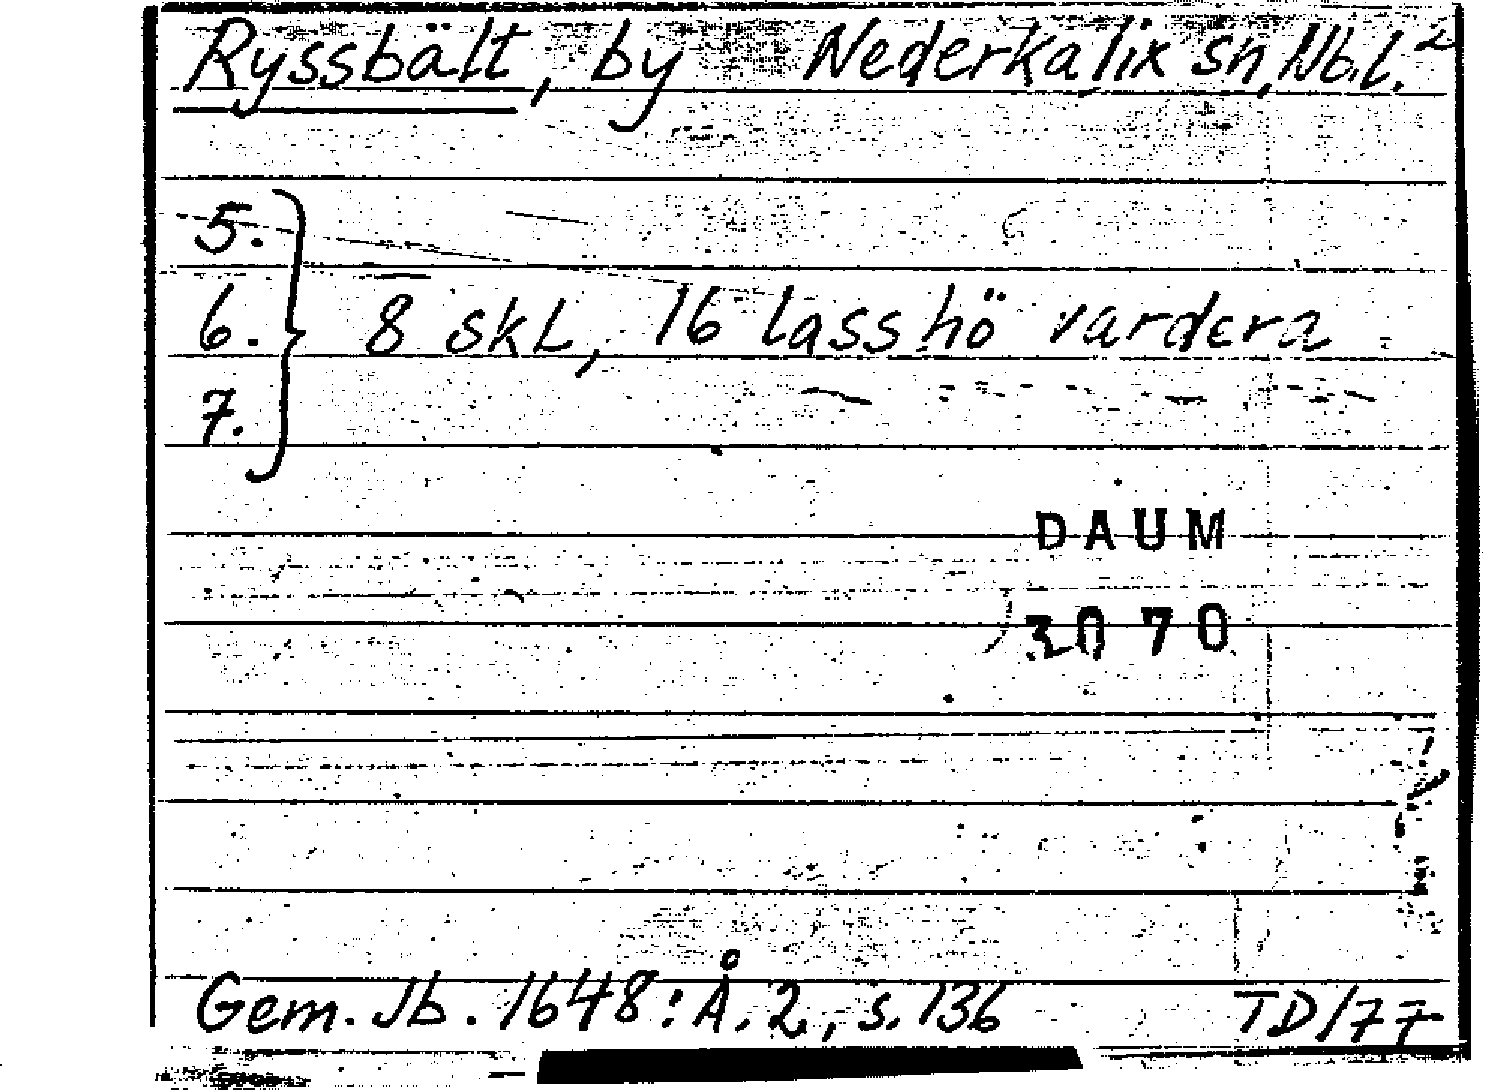 Ryssbält, by Nederkalix sn, Nb.l. 2
5.
6. 8 skL, 16 lass hö vardera
7.
DAUM
3070
Gem. Jb. 1648: Å. 2, s. 136 TD/77